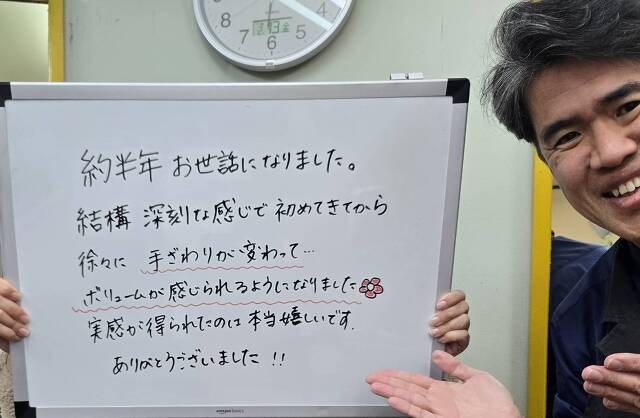 4
5
6
7
8
13 金
約半年 お世話になりました。
結構 深刻な感じで 初めてきてから
徐々に 手ざわりが変わって…
ボリュームが感じられるようになりました
実感が得られたのは 本当嬉しいです.
ありがとうございました !!
amazon basics